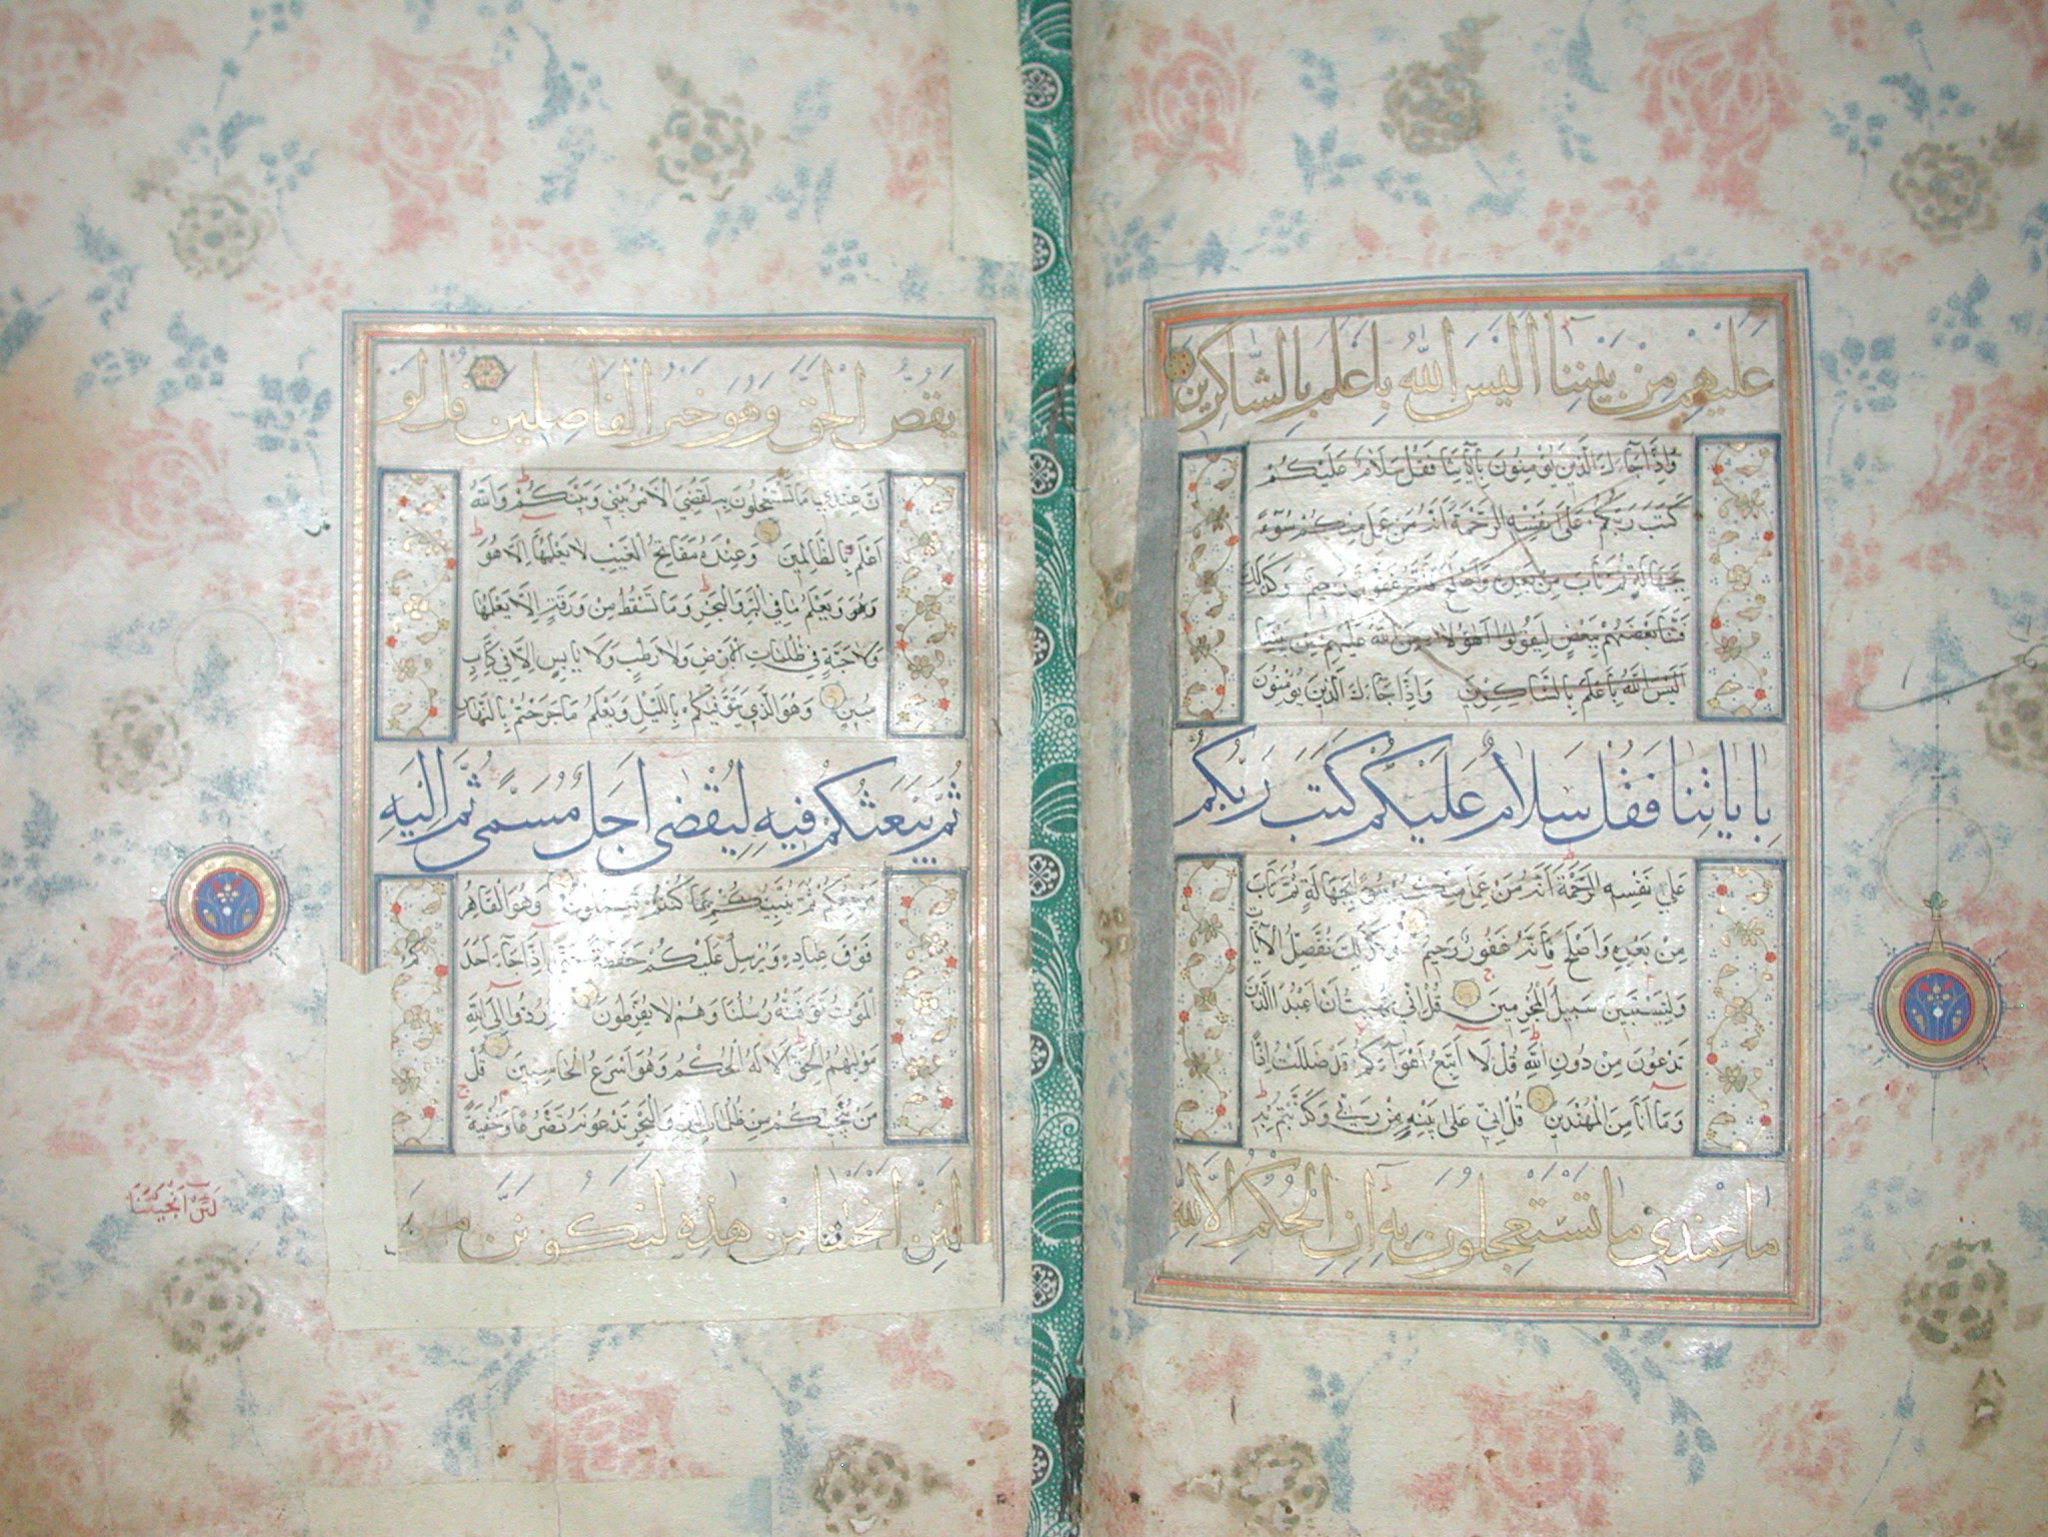 عَلَيْهِم مِنْ بَيْنِنَا اَلَيْسَ اللهُ بِاَعْلَمَ بِالشَّاكِرِينَ
وَاِذَا جَاءَكَ الَّذِينَ يُؤْمِنُونَ بِاٰيَاتِنَا فَقُلْ سَلَامٌ عَلَيْكُمْ
كَتَبَ رَبُّكُمْ عَلٰى نَفْسِهِ الرَّحْمَةَ اَنَّهُ مَنْ عَمِلَ مِنْكُمْ سُوْءً
بِجَهَالَةٍ ثُمَّ تَابَ مِنْ بَعْدِهِ وَاَصْلَحَ فَاَنَّهُ غَفُورٌ رَحِيمٌ وَكَذٰلِكَ
فَتَنَّا بَعْضَهُمْ بِبَعْضٍ لِيَقُولُوا اَهٰؤُلَاءِ مَنَّ اللهُ عَلَيْهِمْ مِنْ بَيْنِنَا
اَلَيْسَ اللهُ بِاَعْلَمَ بِالشَّاكِرِينَ وَاِذَا جَاءَكَ الَّذِينَ يُؤْمِنُونَ
بِاٰيَاتِنَا فَقُلْ سَلَامٌ عَلَيْكُمْ كَتَبَ رَبُّكُمْ
عَلٰي نَفْسِهِ الرَّحْمَةَ اَنَّهُ مَنْ عَمِلَ مِنْكُمْ سُوءً بِجَهَالَةٍ ثُمَّ تَابَ
مِنْ بَعْدِهِ وَاَصْلَحَ فَاَنَّهُ غَفُورٌ رَحِيمٌ وَكَذٰلِكَ نُفَصِّلُ الْاٰيَاتِ
وَلِتَسْتَبِينَ سَبِيلُ الْمُجْرِمِينَ قُلْ اِنِّي نُهِيتُ اَنْ اَعْبُدَ الَّذِينَ
تَدْعُونَ مِنْ دُونِ اللهِ قُلْ لَا اَتَّبِعُ اَهْوَاءَكُمْ قَدْ ضَلَلْتُ اِذًا
وَمَا اَنَا مِنَ الْمُهْتَدِينَ قُلْ اِنِّي عَلٰى بَيِّنَةٍ مِنْ رَبِّي وَكَذَّبْتُمْ بِهِ
مَا عِنْدِي مَا تَسْتَعْجِلُونَ بِهِ اِنِ الْحُكْمُ اِلَّا لِلّٰهِ
يَقُصُّ الْحَقَّ وَهُوَ خَيْرُ الْفَاصِلِينَ قُلْ لَوْ
اَنَّ عِنْدِي مَا تَسْتَعْجِلُونَ بِهِ لَقُضِيَ الْاَمْرُ بَيْنِي وَبَيْنَكُمْ وَاللهُ
اَعْلَمُ بِالظَّالِمِينَ وَعِنْدَهُ مَفَاتِحُ الْغَيْبِ لَا يَعْلَمُهَا اِلَّا هُوَ
وَيَعْلَمُ مَا فِي الْبَرِّ وَالْبَحْرِ وَمَا تَسْقُطُ مِنْ وَرَقَةٍ اِلَّا يَعْلَمُهَا
وَلَا حَبَّةٍ فِي ظُلُمَاتِ الْاَرْضِ وَلَا رَطْبٍ وَلَا يَابِسٍ اِلَّا فِي كِتَابٍ
مُبِينٍ وَهُوَ الَّذِي يَتَوَفّٰيكُمْ بِاللَّيْلِ وَيَعْلَمُ مَا جَرَحْتُمْ بِالنَّهَارِ
ثُمَّ يَبْعَثُكُمْ فِيهِ لِيُقْضٰى اَجَلٌ مُسَمًّى ثُمَّ اِلَيْهِ
مَرْجِعُكُمْ ثُمَّ يُنَبِّئُكُمْ بِمَا كُنْتُمْ تَعْمَلُونَ وَهُوَ الْقَاهِرُ
فَوْقَ عِبَادِهِ وَيُرْسِلُ عَلَيْكُمْ حَفَظَةً حَتّٰى اِذَا جَاءَ اَحَدَكُمُ
الْمَوْتُ تَوَفَّتْهُ رُسُلُنَا وَهُمْ لَا يُفَرِّطُونَ ثُمَّ رُدُّوا اِلَى اللهِ
مَوْلٰيهُمُ الْحَقِّ اَلَا لَهُ الْحُكْمُ وَهُوَ اَسْرَعُ الْحَاسِبِينَ قُلْ
مَنْ يُنَجِّيكُمْ مِنْ ظُلُمَاتِ الْبَرِّ وَالْبَحْرِ تَدْعُونَهُ تَضَرُّعًا وَخُفْيَةً
لَئِنْ اَنْجَيْتَنَا مِنْ هٰذِهِ لَنَكُونَنَّ مِنَ
لَئِنْ اَنْجَيْتَنَا